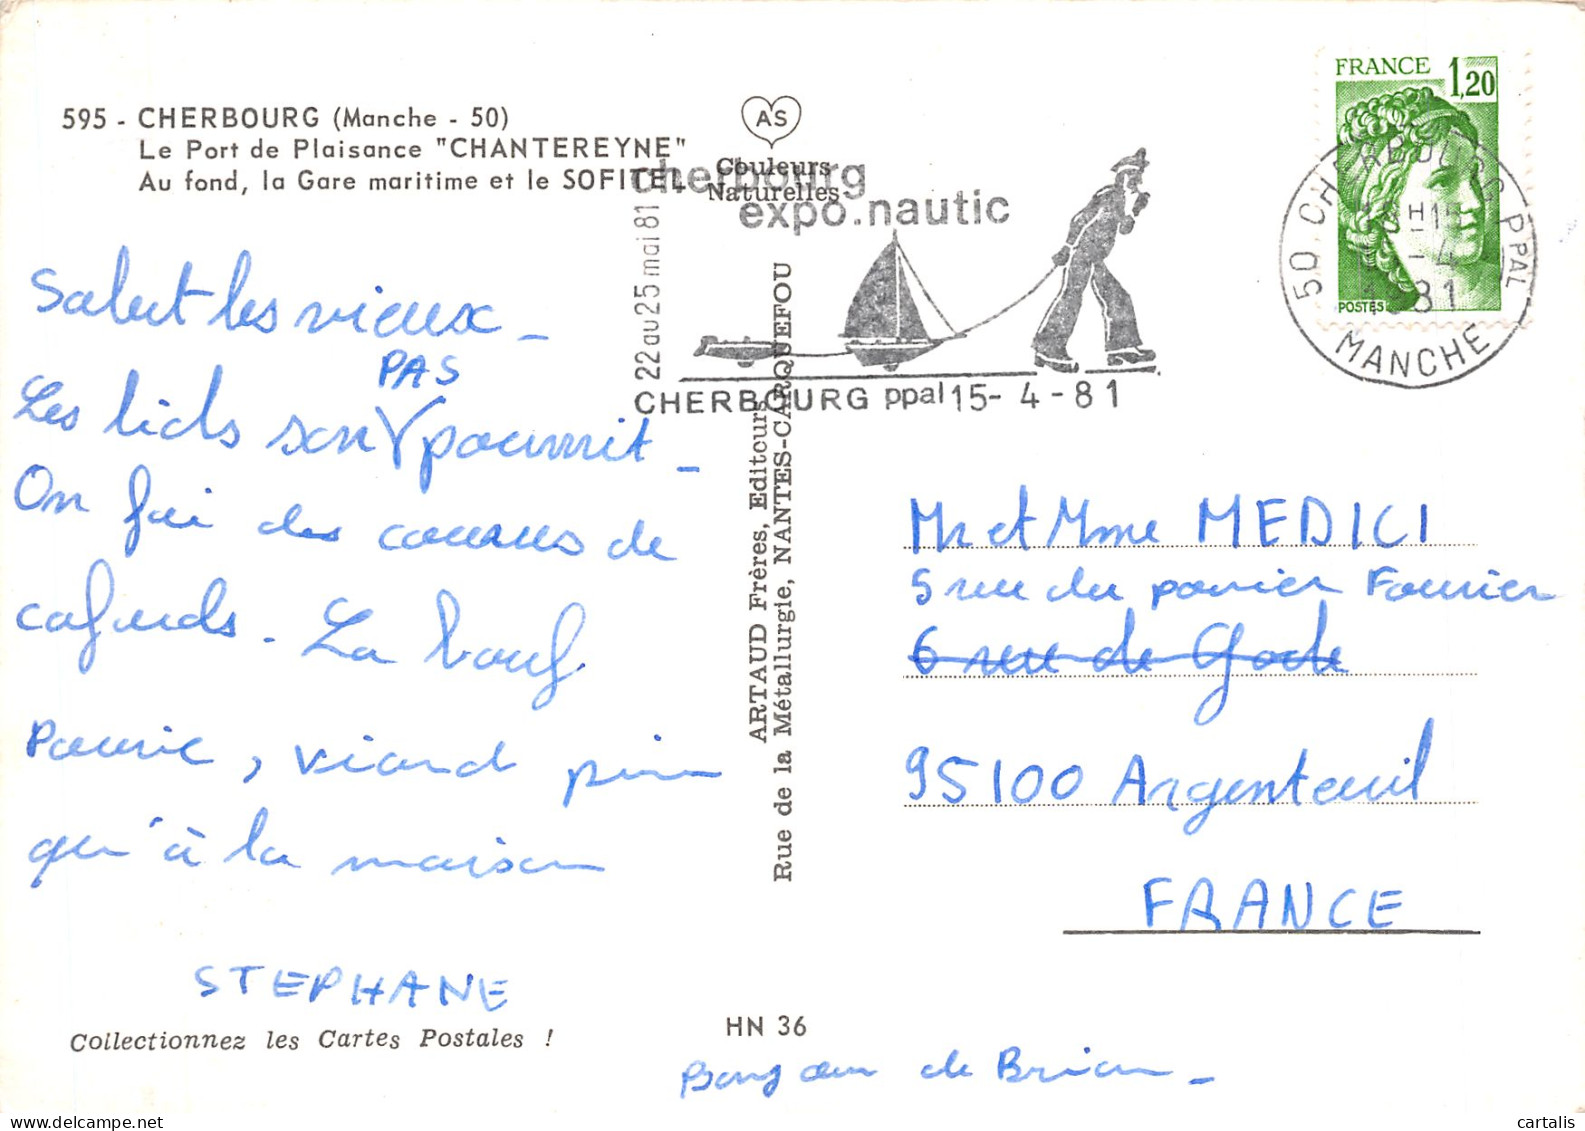 595 - CHERBOURG (Manche - 50)
Le Port de Plaisance "CHANTEREYNE"
Au fond, la Gare maritime et le SOFITEL
AS
Couleurs
Naturelles
cherbourg
expo.nautic
22 au 25 mai 81
CHERBOURG ppal 15-4-81
FRANCE 1,20
POSTES
50 CHERBOURG PPAL
1981
MANCHE
Salut les vieux -
PAS
Les lids son pourrit -
On fai des courses de
cafards. La bouf
Pourie, viand pire
qu'à la maison
STEPHANE
Collectionnez les Cartes Postales !
ARTAUD Frères, Editeurs
Rue de la Métallurgie, NANTES-CARQUEFOU
Mr et Mme MEDICI
5 rue du panier Fourier
6 rue de
95100 Argenteuil
FRANCE
HN 36
Bonjour de Brian -
cartalis
www.delcampe.net